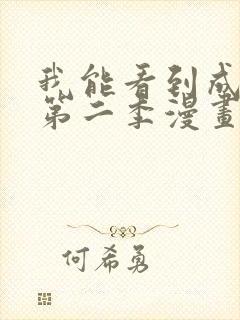 我能看到成
第二季漫畫
何希勇